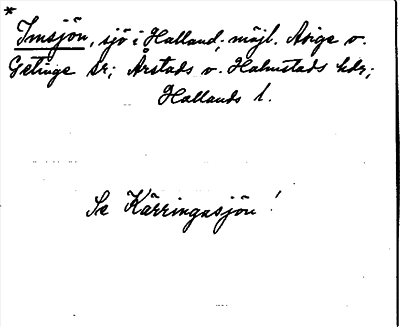 * Imsjön, sjö i Halland; möjl. Asige o.
Getinge sr; Årstads o. Halmstads hdr;
Hallands l.
Se Kärringasjön!